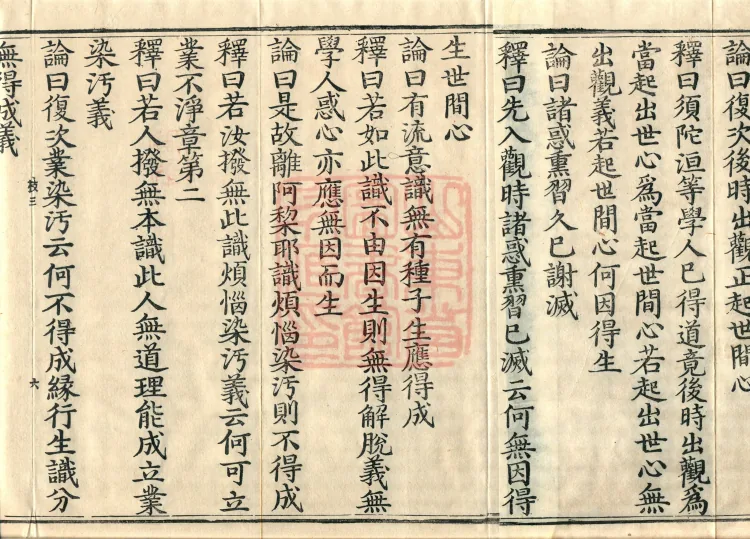 論曰復次後時出觀正起世間心
釋曰須陀洹等學人已得道竟後時出觀爲
當起出世心爲當起世間心若起出世心無
出觀義若起世間心何因得生
論曰諸惑熏習久已謝滅
釋曰先入觀時諸惑熏習已滅云何無因得
生世間心
論曰有流意識無有種子生應得成
釋曰若如此識不由因生則無得解脫義無
學人惑心亦應無因而生
論曰是故離阿黎耶識煩惱染汚則不得成
釋曰若汝撥無此識煩惱染汚義云何可立
業不淨章第二
釋曰若人撥無本識此人無道理能成立業
染汚義
論曰復次業染汚云何不得成緣行生識分
無得成義
枝三
六